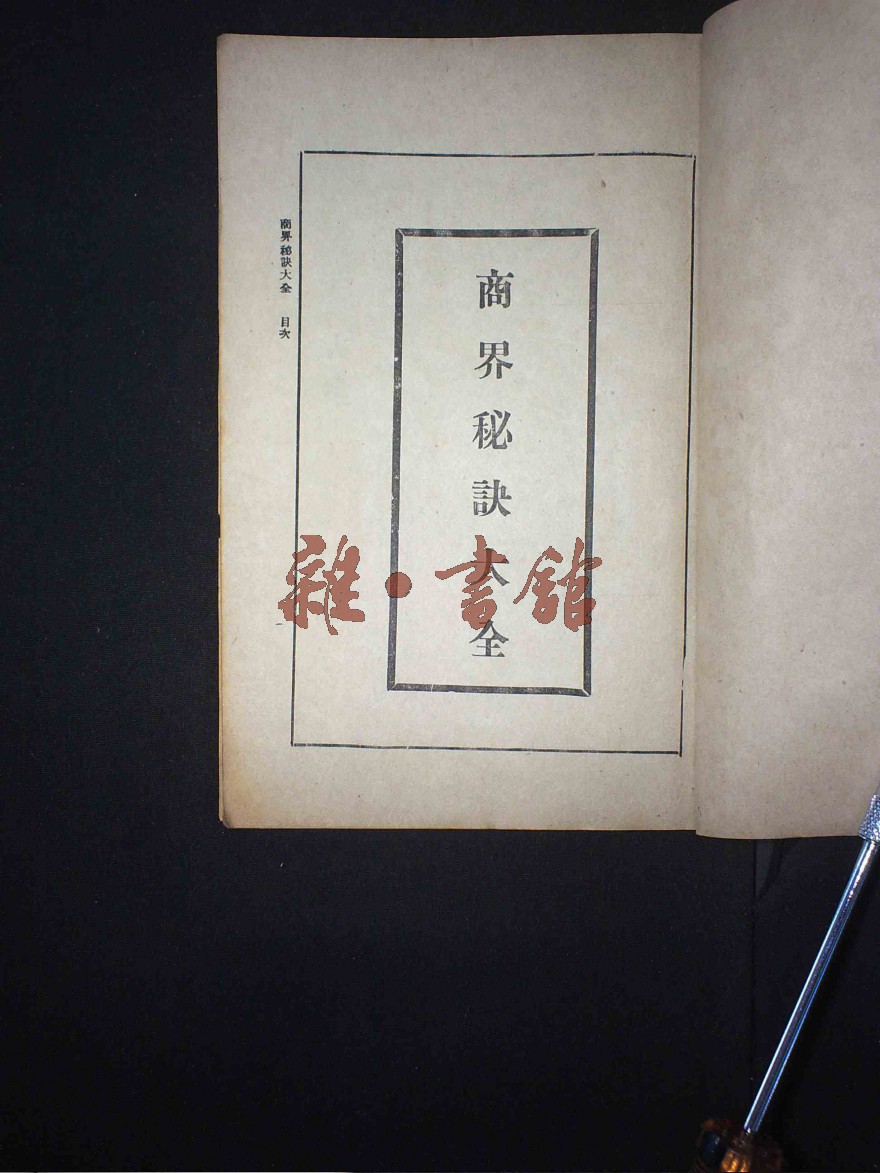 商界秘訣大全
商界秘訣大全 目次
一
雜·書館